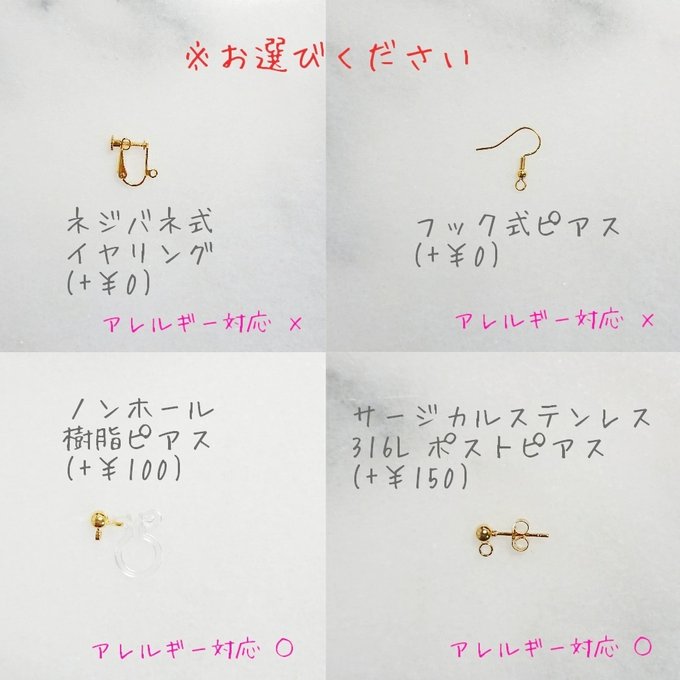 ※お選びください
ネジバネ式
イヤリング
(+¥0)
アレルギー対応 ×
フック式ピアス
(+¥0)
アレルギー対応 ×
ノンホール
樹脂ピアス
(+¥100)
アレルギー対応 ○
サージカルステンレス
316L ポストピアス
(+¥150)
アレルギー対応 ○